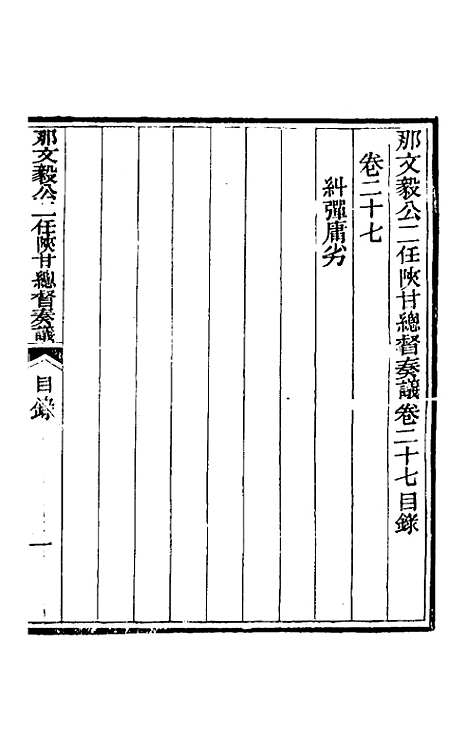 那文毅公二任陝甘總督奏議卷二十七目錄
卷二十七
糾彈庸劣
那文毅公二任陝甘總督奏議
目錄
一